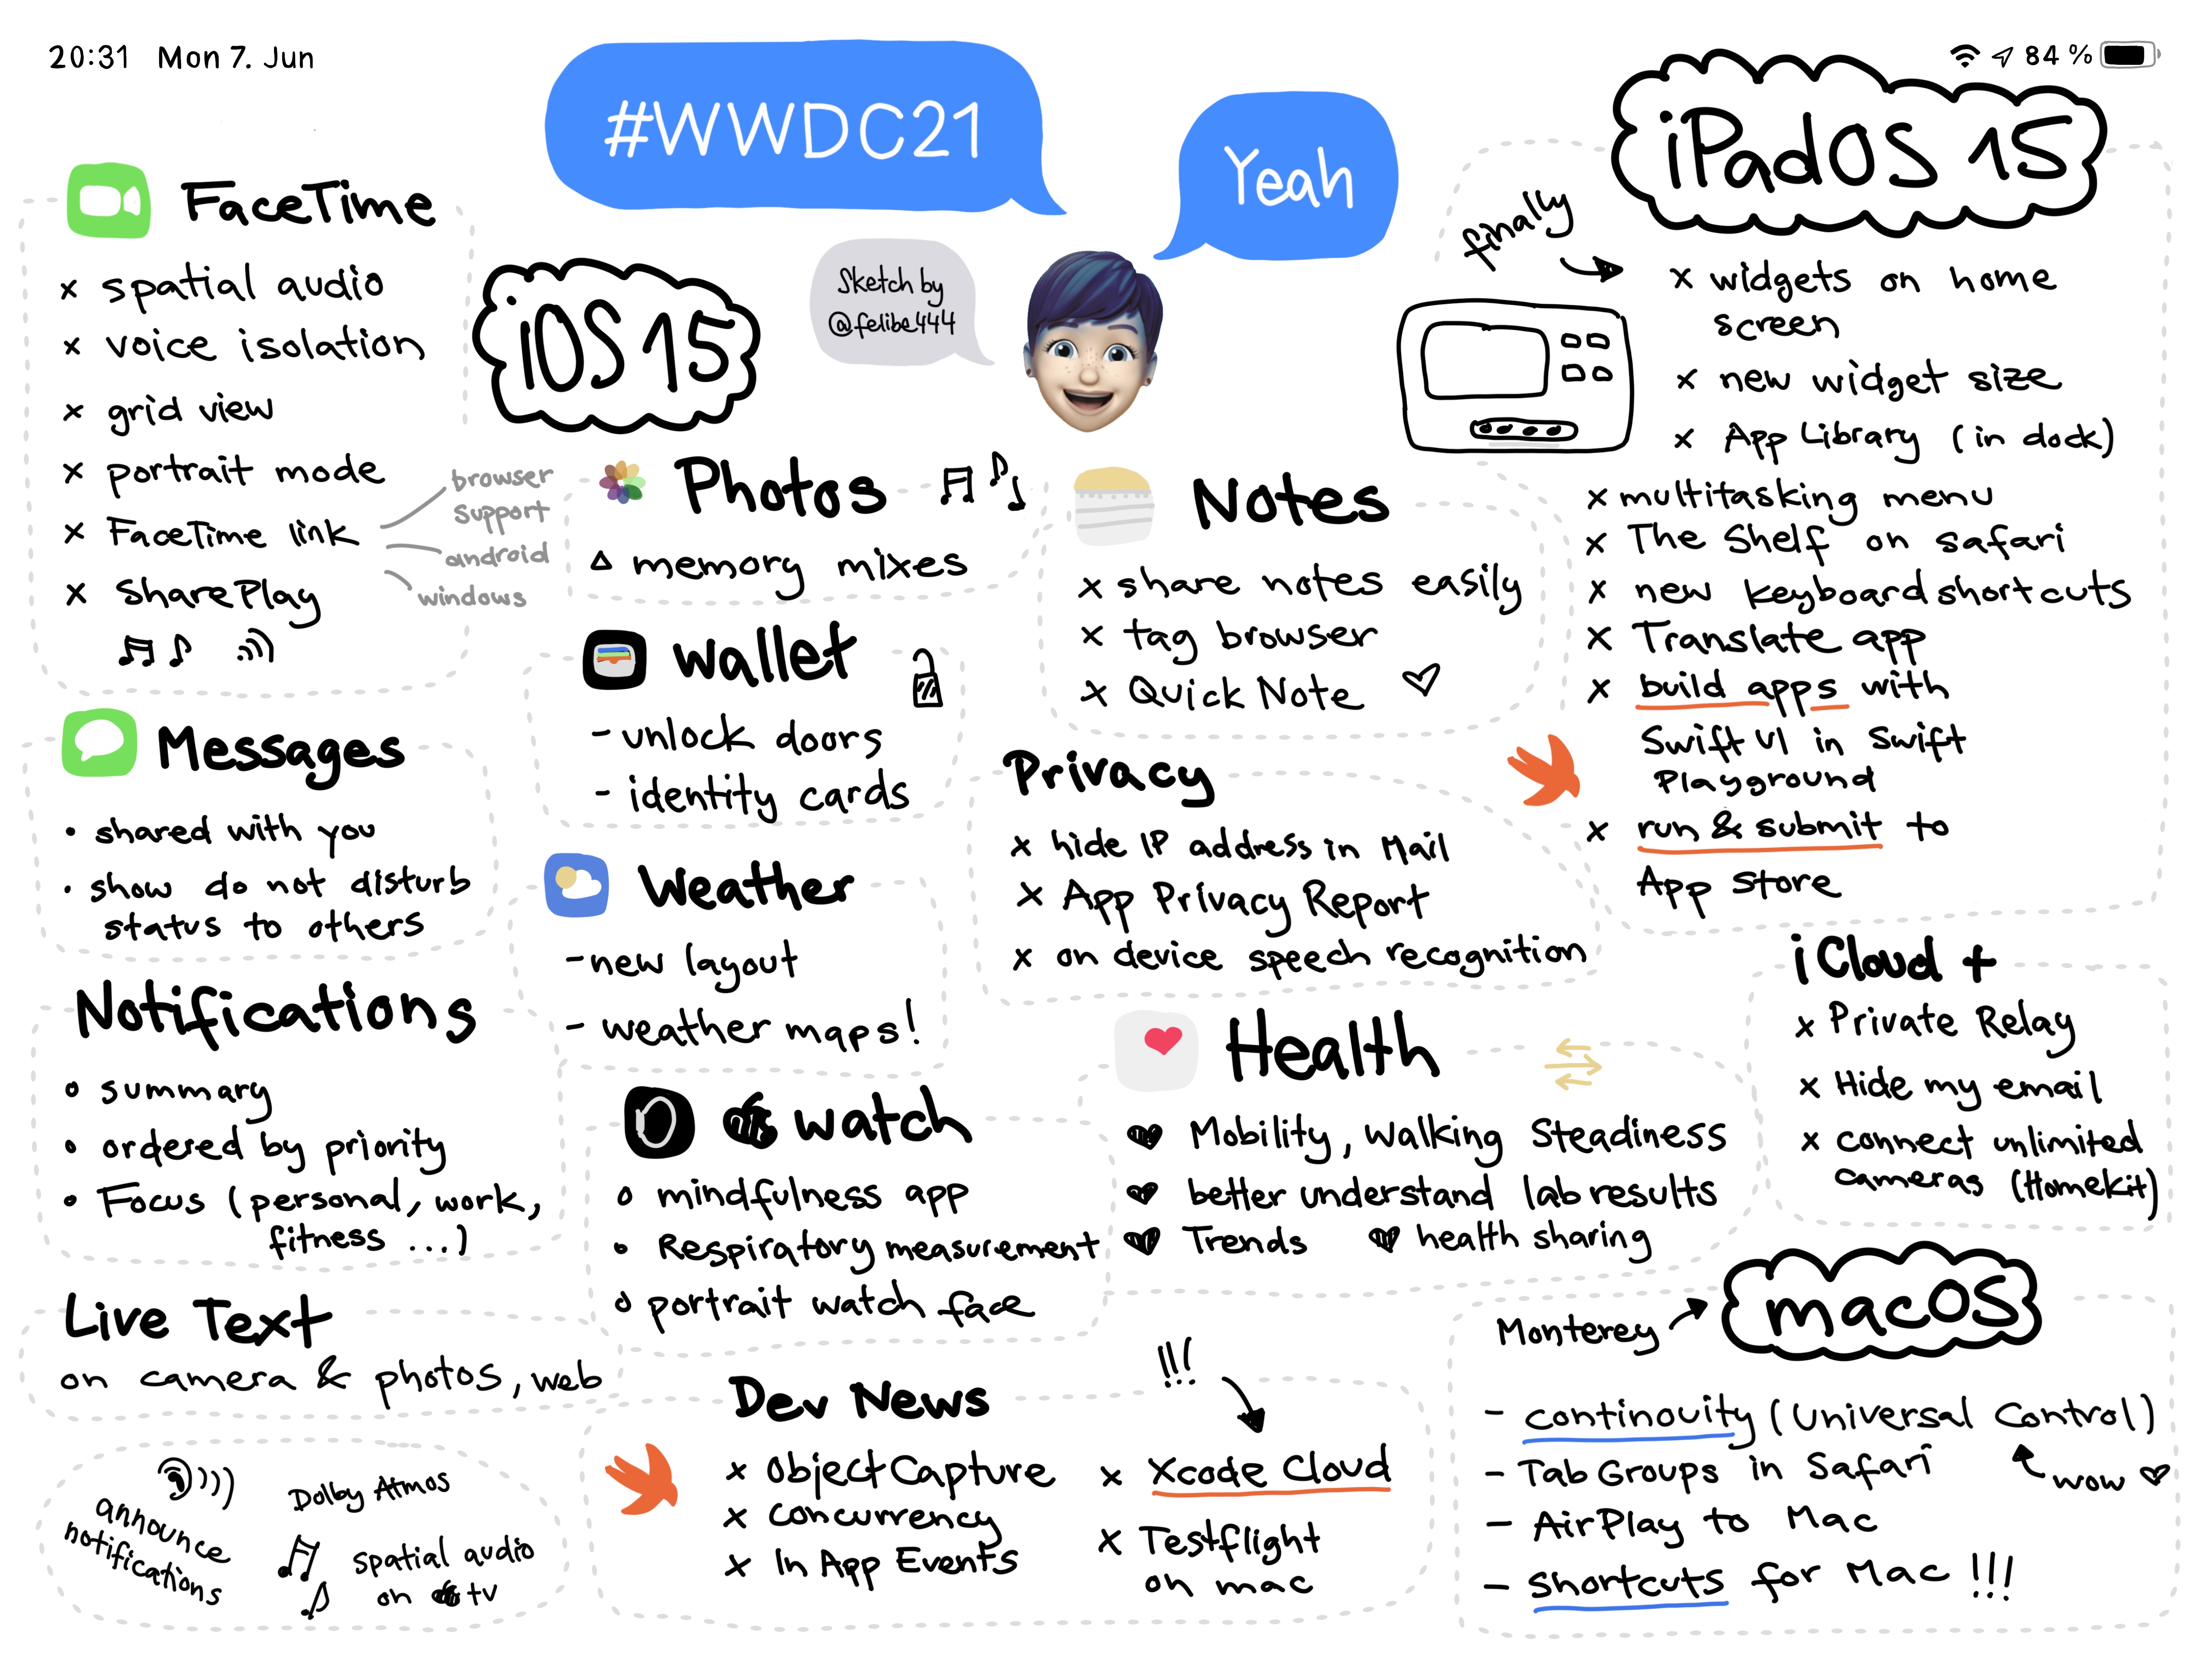 20:31 Mon 7. Jun
84 %
#WWDC21
Yeah
Sketch by
@felibe444
iOS 15
FaceTime
x spatial audio
x voice isolation
x grid view
x portrait mode
x FaceTime link
browser
support
android
windows
x SharePlay
Messages
• shared with you
• show do not disturb
status to others
Notifications
• summary
• ordered by priority
• Focus (personal, work,
fitness ...)
Live Text
on camera & photos, web
announce
notifications
Dolby Atmos
spatial audio
on tv
Photos
△ memory mixes
Wallet
- unlock doors
- identity cards
Weather
- new layout
- weather maps!
watch
• mindfulness app
• Respiratory measurement
• portrait watch face
Notes
x share notes easily
x tag browser
x Quick Note
Privacy
x hide IP address in Mail
x App Privacy Report
x on device speech recognition
Health
Mobility, Walking Steadiness
better understand lab results
Trends
health sharing
Dev News
x Object Capture
x Concurrency
x In App Events
!!!
x Xcode Cloud
x Testflight
on mac
iPadOS 15
finally
x widgets on home
screen
x new widget size
x App Library (in dock)
x multitasking menu
x The Shelf on safari
x new keyboard shortcuts
x Translate app
x build apps with
Swift UI in Swift
Playground
x run & submit to
App Store
iCloud +
x Private Relay
x Hide my email
x connect unlimited
cameras (Homekit)
macOS
Monterey
- continouity (Universal Control)
wow
- Tab Groups in Safari
- AirPlay to Mac
- Shortcuts for Mac !!!